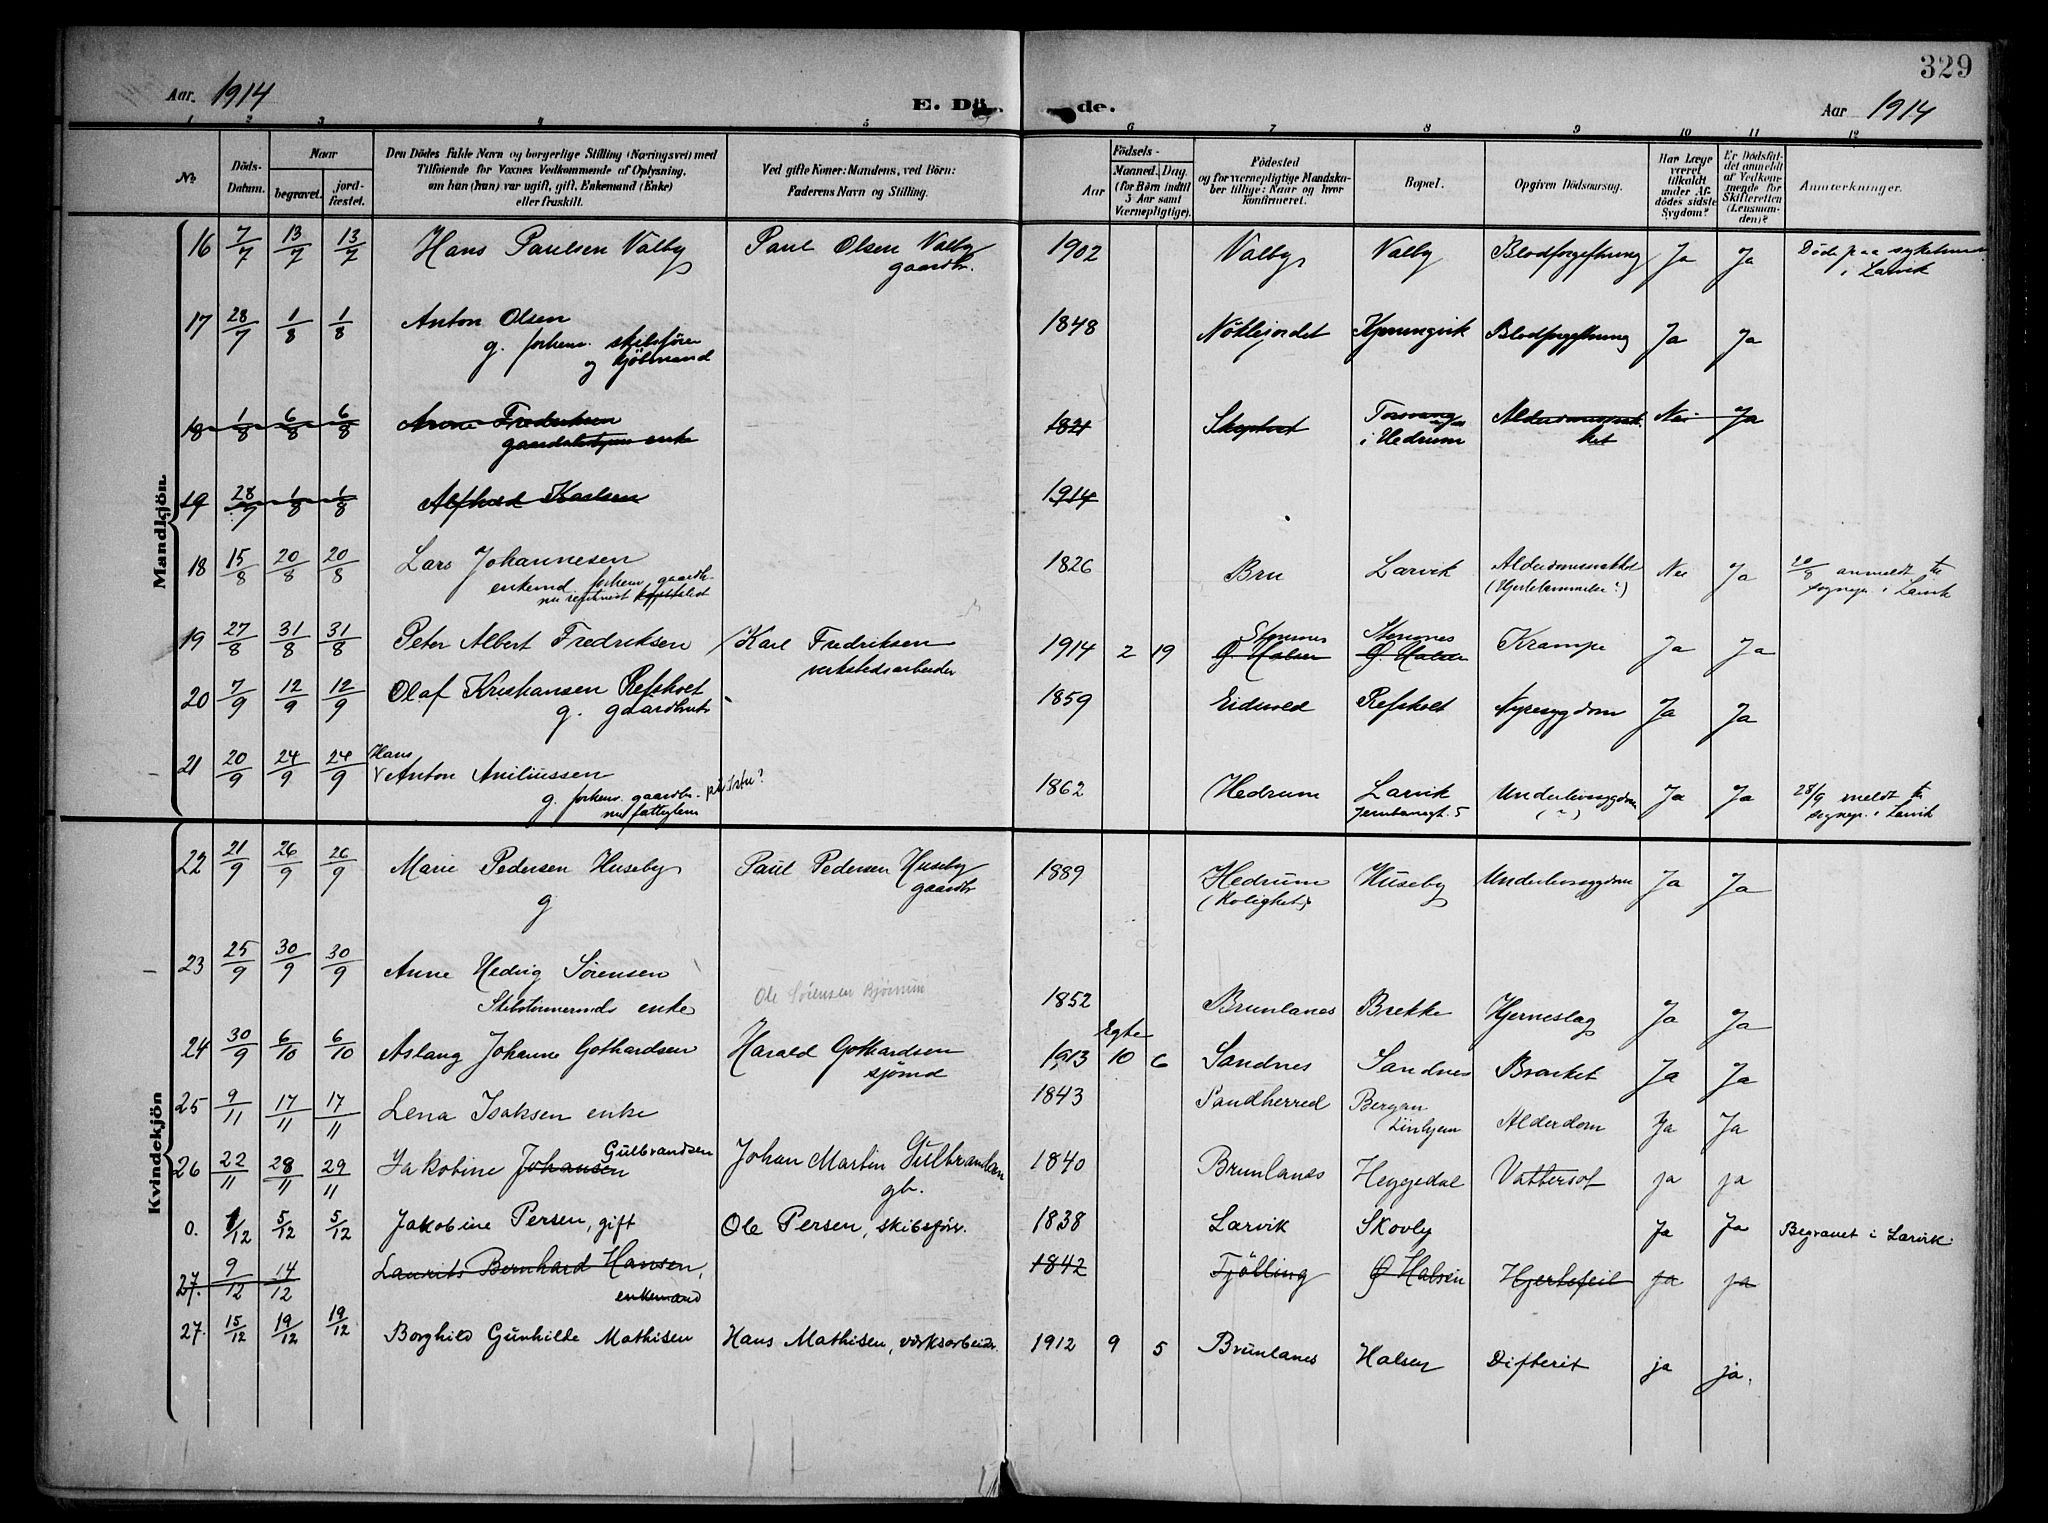 329
Aar 1914
E. Dö de.
Aar 1914
1 2 3 4 5 6 7 8 9 10 11 12
No
Döds-Datum.
Naar
begravet.
jord-fæstet.
Den Dödes fulde Navn og borgerlige Stilling (Næringsvei) med
Tilföiende for Voxnes Vedkommende af Oplysning,
om han (hun) var ugift, gift, Enkemand (Enke)
eller fraskilt.
Ved gifte Koner: Mandens, ved Börn:
Faderens Navn og Stilling.
Födsels-
Aar
Maaned. Dag.
(for Börn indtil
5 Aar samt
Værnepligtige).
Födested
og for værnepligtige Mandska-
ber tillige: Naar og hvor
konfirmeret.
Bopæl.
Opgiven Dödsaarsag.
Har Læge
været
tilkaldt
under Af-
dödes sidste
Sygdom?
Er Dödsfal-
det anmeldt
af Vedkom-
mende for
Skifteretten
(Lensman-
den)?
Anmærkninger.
Mandkjön.
16 7/7 13/7 13/7 Hans Paulsen Valby Paul Olsen Valby 1902 Valby Valby Blodforgiftning Ja Ja Döde paa
gaardbr. i Larvik
17 28/7 1/8 1/8 Anton Olsen 1848 Nöklejordet Kjerringvik Blodforgiftning Ja Ja
g. forhenv. skibsförer
og kjöbmand
18 1/8 6/8 6/8 Anne Fredriksen 1821 Nei Ja
enke i Hedrum
19 28/7 1/8 1/8 Alfhild Karlsen 1914
18 15/8 20/8 20/8 Lars Johannesen 1826 Bru Larvik Nei Ja 20/8 anmeldt til
enkemd forhenv. gaardbr. sognepr. i Larvik
19 27/8 31/8 31/8 Peter Albert Fredriksen Karl Fredriksen 1914 2 19 Stavnes Stavnes Krampe Ja Ja
verkstedsarbeider Ø. Halsen Ø. Halsen
20 7/9 12/9 12/9 Olaf Kristiansen Refsholt 1859 Eidsvold Refsholt Nyresygdom Ja Ja
g. gaardbruker
21 20/9 24/9 24/9 Hans
Anton Aniliussen 1862 Hedrum Larvik Underlivssygdom Ja Ja 28/9 meldt til
g. forhenv. gaardbr. på Istre? Jernbanegt. 5 (?) sognepr. i Larvik
nu fattiglem
Kvindekjön
22 21/9 26/9 26/9 Marie Pedersen Huseby Paul Pedersen Huseby 1889 Hedrum Huseby Underlivssygdom Ja Ja
g gaardbr
23 25/9 30/9 30/9 Anne Hedvig Sörensen Brunlanes Brekke Hjerneslag Ja Ja
Skibstömmermds enke Ole Sörensen Bjönnum 1852
24 30/9 6/10 6/10 Aslaug Johanne Gothardsen Harald Gothardsen Egte
1913 10 6 Sandnes Sandnes Ja Ja
sjömd
25 9/11 17/11 17/11 Lena Isaksen enke 1843 Sandherred Bergan Alderdom Ja Ja
26 22/11 28/11 29/11 Jakobine Johansen Gulbrandsen Johan Martin Gulbrandsen 1840 Brunlanes Heggedal Vattersot ja ja
gb.
0. 1/12 5/12 5/12 Jakobine Persen, gift Ole Persen, skibsför. 1838 Larvik Skovly Ja Ja Begravet i Larvik.
27. 9/12 14/12 Laurits Bernhard Hansen, 1842 Tjölling Ø Halsen Hjertefeil ja ja
enkemand
27. 15/12 19/12 19/12 Borghild Gunhilde Mathisen Hans Mathisen, verksarbeider 1912 9 5 Brunlanes Halsen Difterit ja ja.